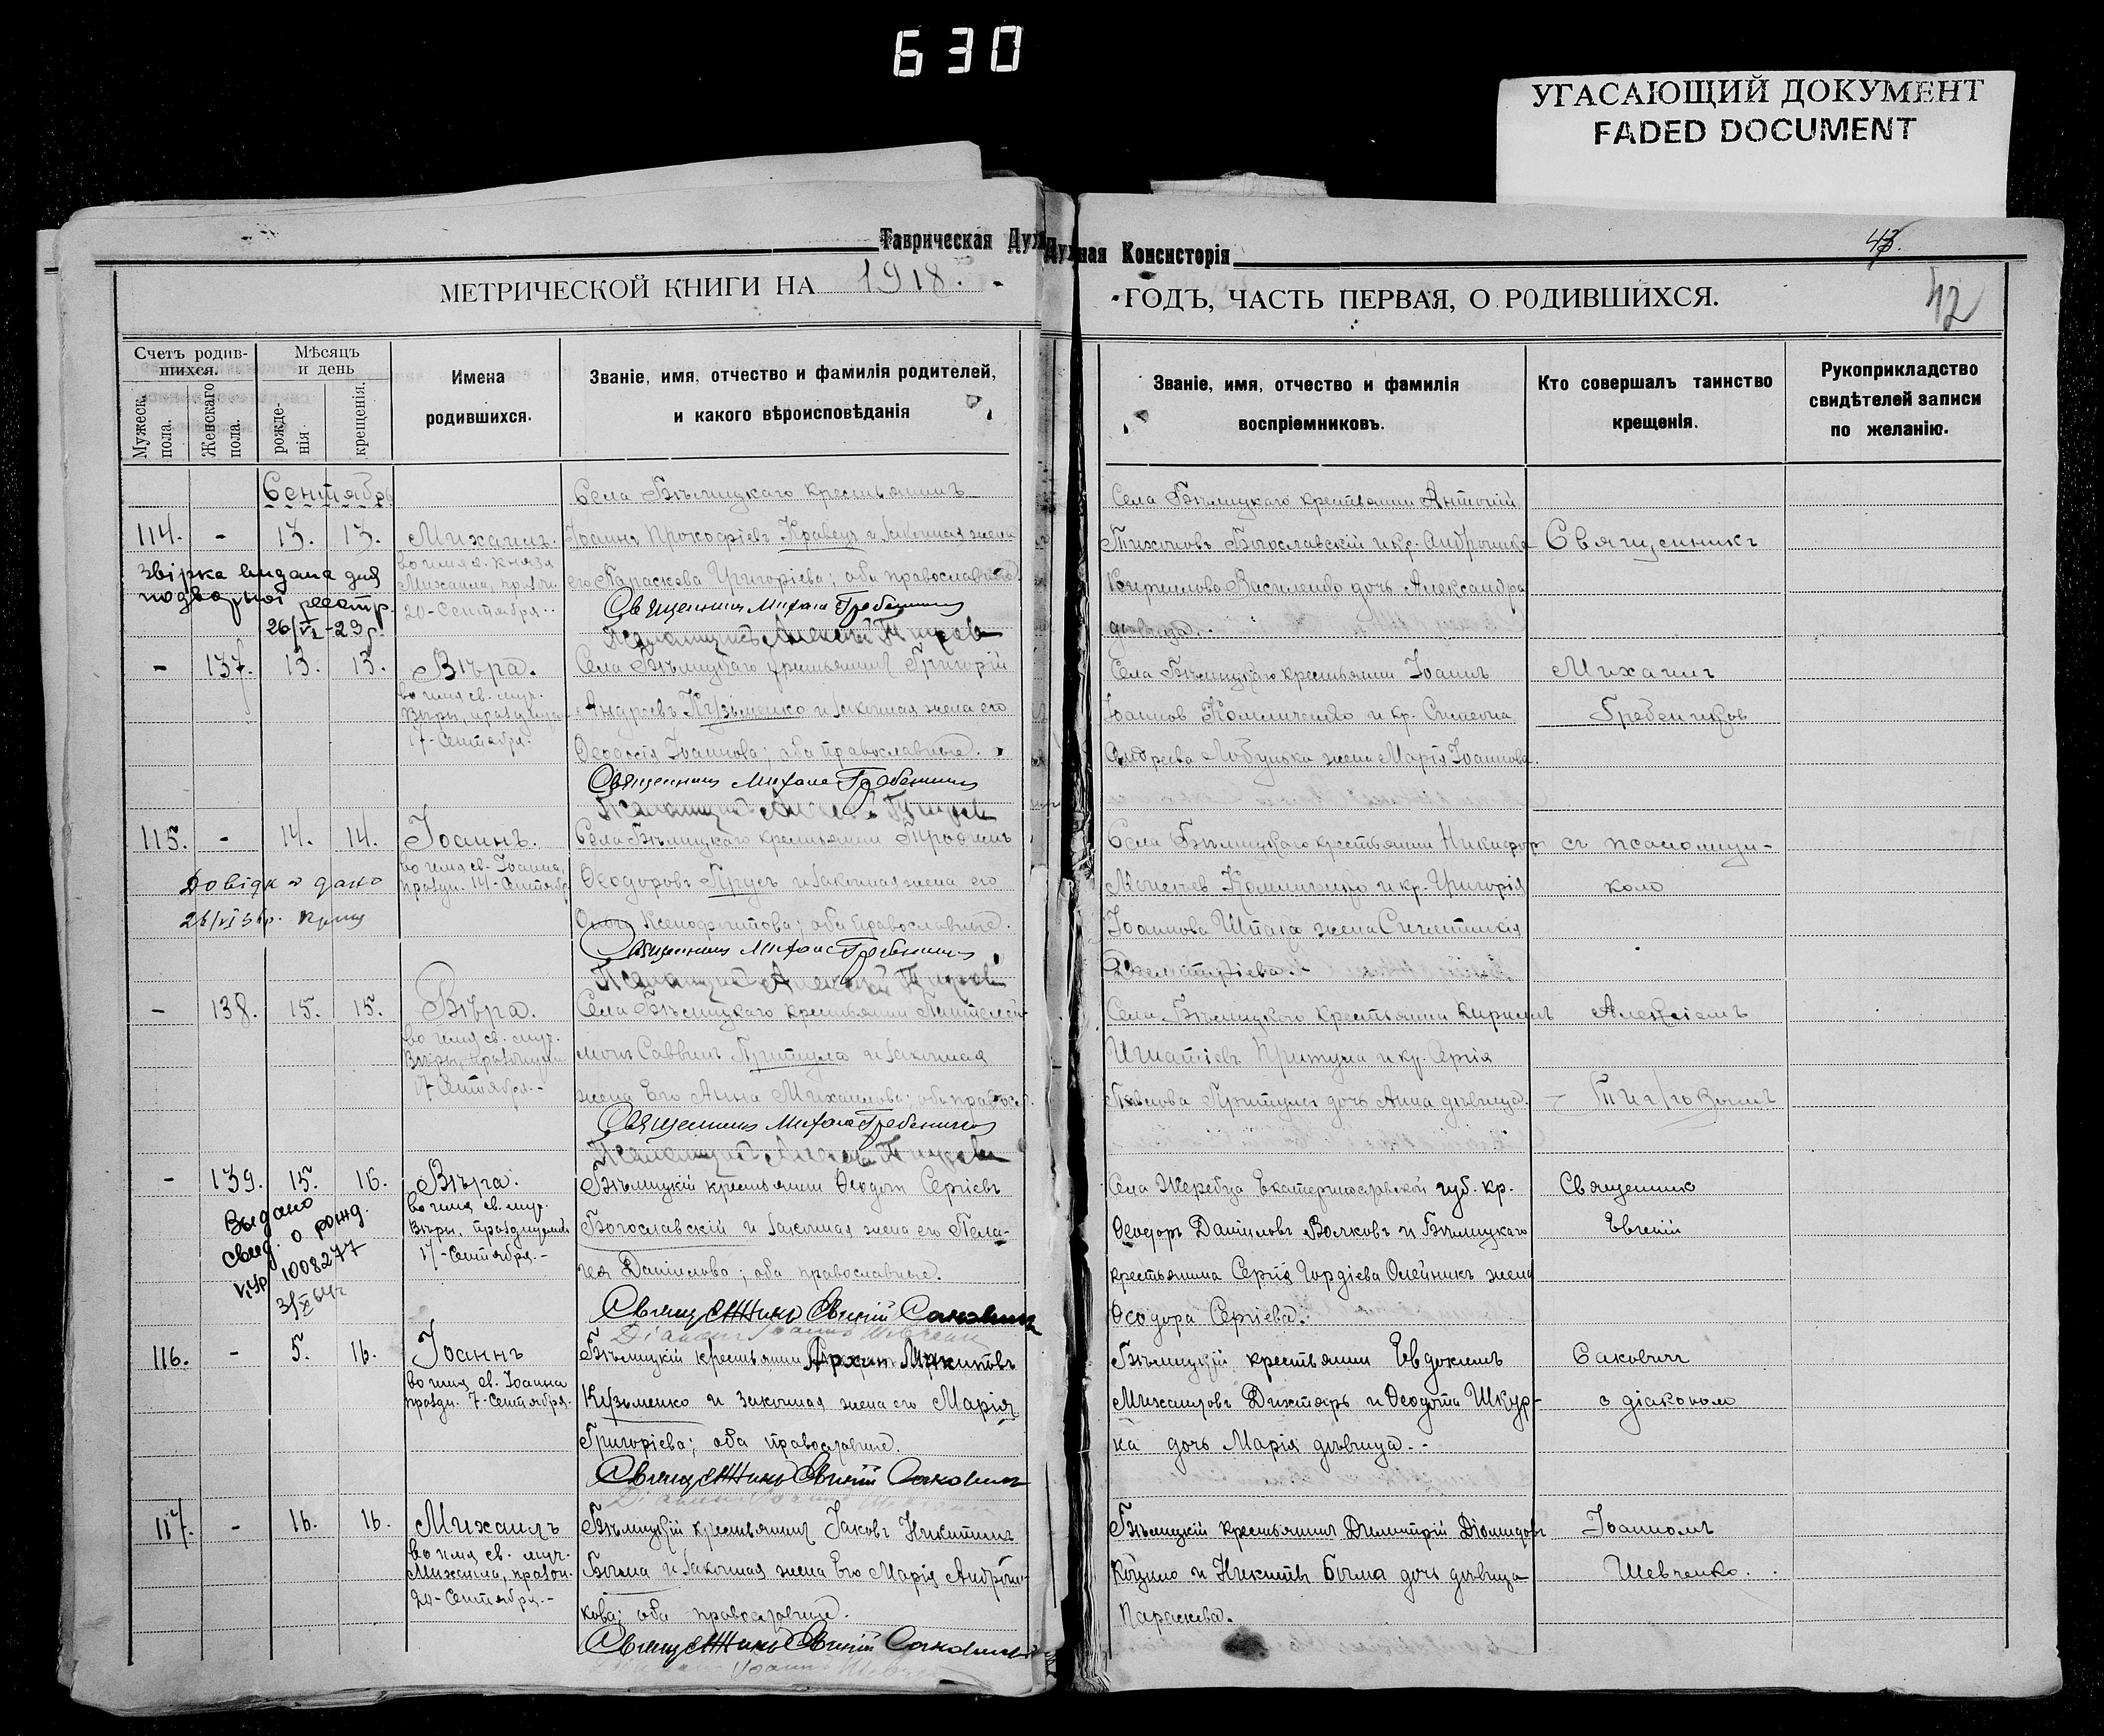 630
УГАСАЮЩИЙ ДОКУМЕНТ
FADED DOCUMENT
Таврическая Духовная Консисторія
43.
42
МЕТРИЧЕСКОЙ КНИГИ НА 1918. ГОДЪ, ЧАСТЬ ПЕРВАЯ, О РОДИВШИХСЯ.
Счетъ родив-
шихся.
Мужеск. пола.
Женскаго пола.
Мѣсяцъ
и день
рожде-
нія
крещенія.
Имена
родившихся.
Званіе, имя, отчество и фамилія родителей,
и какого вѣроисповѣданія
Званіе, имя, отчество и фамилія
воспріемниковъ.
Кто совершалъ таинство
крещенія.
Рукоприкладство
свидѣтелей записи
по желанію.
Сентябрь
114. - 13. 13. Михаилъ.
во имя в. князя
Михаила, праздн.
20-Сентября.
Звірка видана для
подворної реєстр.
26/VI-23 р.
Села Бѣлицкаго крестьянинъ
Іоаннъ Прокофіевъ Кравецъ и законная жена
его Параскева Григоріева; оба православные.
Священникъ Михаил Гребенников
Села Бѣлицкаго крестьянин Антоній
Тихоновъ Богославскій и кр. Андроника
Кириллова Василенко дочь Александра
дѣвица.
Священникъ
- 137. 13. 13. Вѣра.
во имя св. муч.
Вѣры, празднуем.
17-Сентября.
Села Бѣлицкаго крестьянинъ Григорій
Андреевъ Кузьменко и законная жена его
Ѳеодосія Іоаннова; оба православные.
Священникъ Михаил Гребенников
Села Бѣлицкаго крестьянин Іоаннъ
Іоаннов Коломиченко и кр. Симеона
Андреева Лобунька жена Марія Іоаннова.
Михаилъ
Гребенников
115. - 14. 14. Іоаннъ.
во имя св. Іоанна,
праздн. 14-Сентября
Довідка дана
Села Бѣлицкаго крестьянин Трофимъ
Ѳеодоровъ Прусъ и законная жена его
Ксенофонтова; оба православные.
Священникъ Михаил Гребенников
Села Бѣлицкаго крестьянин Никифор
и кр. Григорія
Іоаннова жена
Димитріева.
съ псаломщи-
комъ
- 138. 15. 15. Вѣра.
во имя св. муч.
Вѣры, празднуем.
17 Сентября.-
Села Бѣлицкаго крестьянин Пантелей-
монъ Саввинъ Притула и законная
жена Его Анна Михаилова; оба правосл.
Священникъ Михаил Гребенников
Села Бѣлицкаго крестьянин Кириллъ
Игнатіевъ Притула и кр. Сергія
Павлова Притулы дочь Анна дѣвица.
Алексіемъ
- 139. 15. 16. Вѣра.
во имя св. муч.
Вѣры, празднуемой
17-Сентября.-
Выдано
свид. о рожд.
1008277
Бѣлицкій крестьянин Ѳеодот Сергіевъ
Богославскій и законная жена его Пела-
гея Даніилова; оба православные.
Священникъ Евгеній Саковичъ
Села Жеребца Екатеринославской губ. кр.
Ѳеодоръ Даніиловъ Волковъ и Бѣлицкаго
крестьянина Сергія Гордіева Олейникъ жена
Ѳеодора Сергіева.
Священникъ
Евгеній
116. - 5. 16. Іоаннъ
во имя св. Іоанна
праздн. 7-Сентября.
Бѣлицкій крестьянин Архип Микитовъ
Кузьменко и законная жена его Марія
Григоріева; оба православные.
Священникъ Евгеній Саковичъ
Бѣлицкій крестьянин Евдокимъ
Михаиловъ Дихтярь и Ѳеодота Шкур-
ка дочь Марія дѣвица.-
Саковичъ
з діаконом
117. - 16. 16. Михаилъ
во имя св. муч.
Михаила, праздн.
20-Сентября.-
Бѣлицкій крестьянинъ Іаковъ Никитинъ
Бѣлма и законная жена Его Марія Андрони-
кова; оба православные.
Священникъ Евгеній Саковичъ
Бѣлицкій крестьянинъ Димитрій Діомидовъ
Коцило и Никиты Бѣлма дочь дѣвица
Параскева.
Іоанномъ
Шевченко.